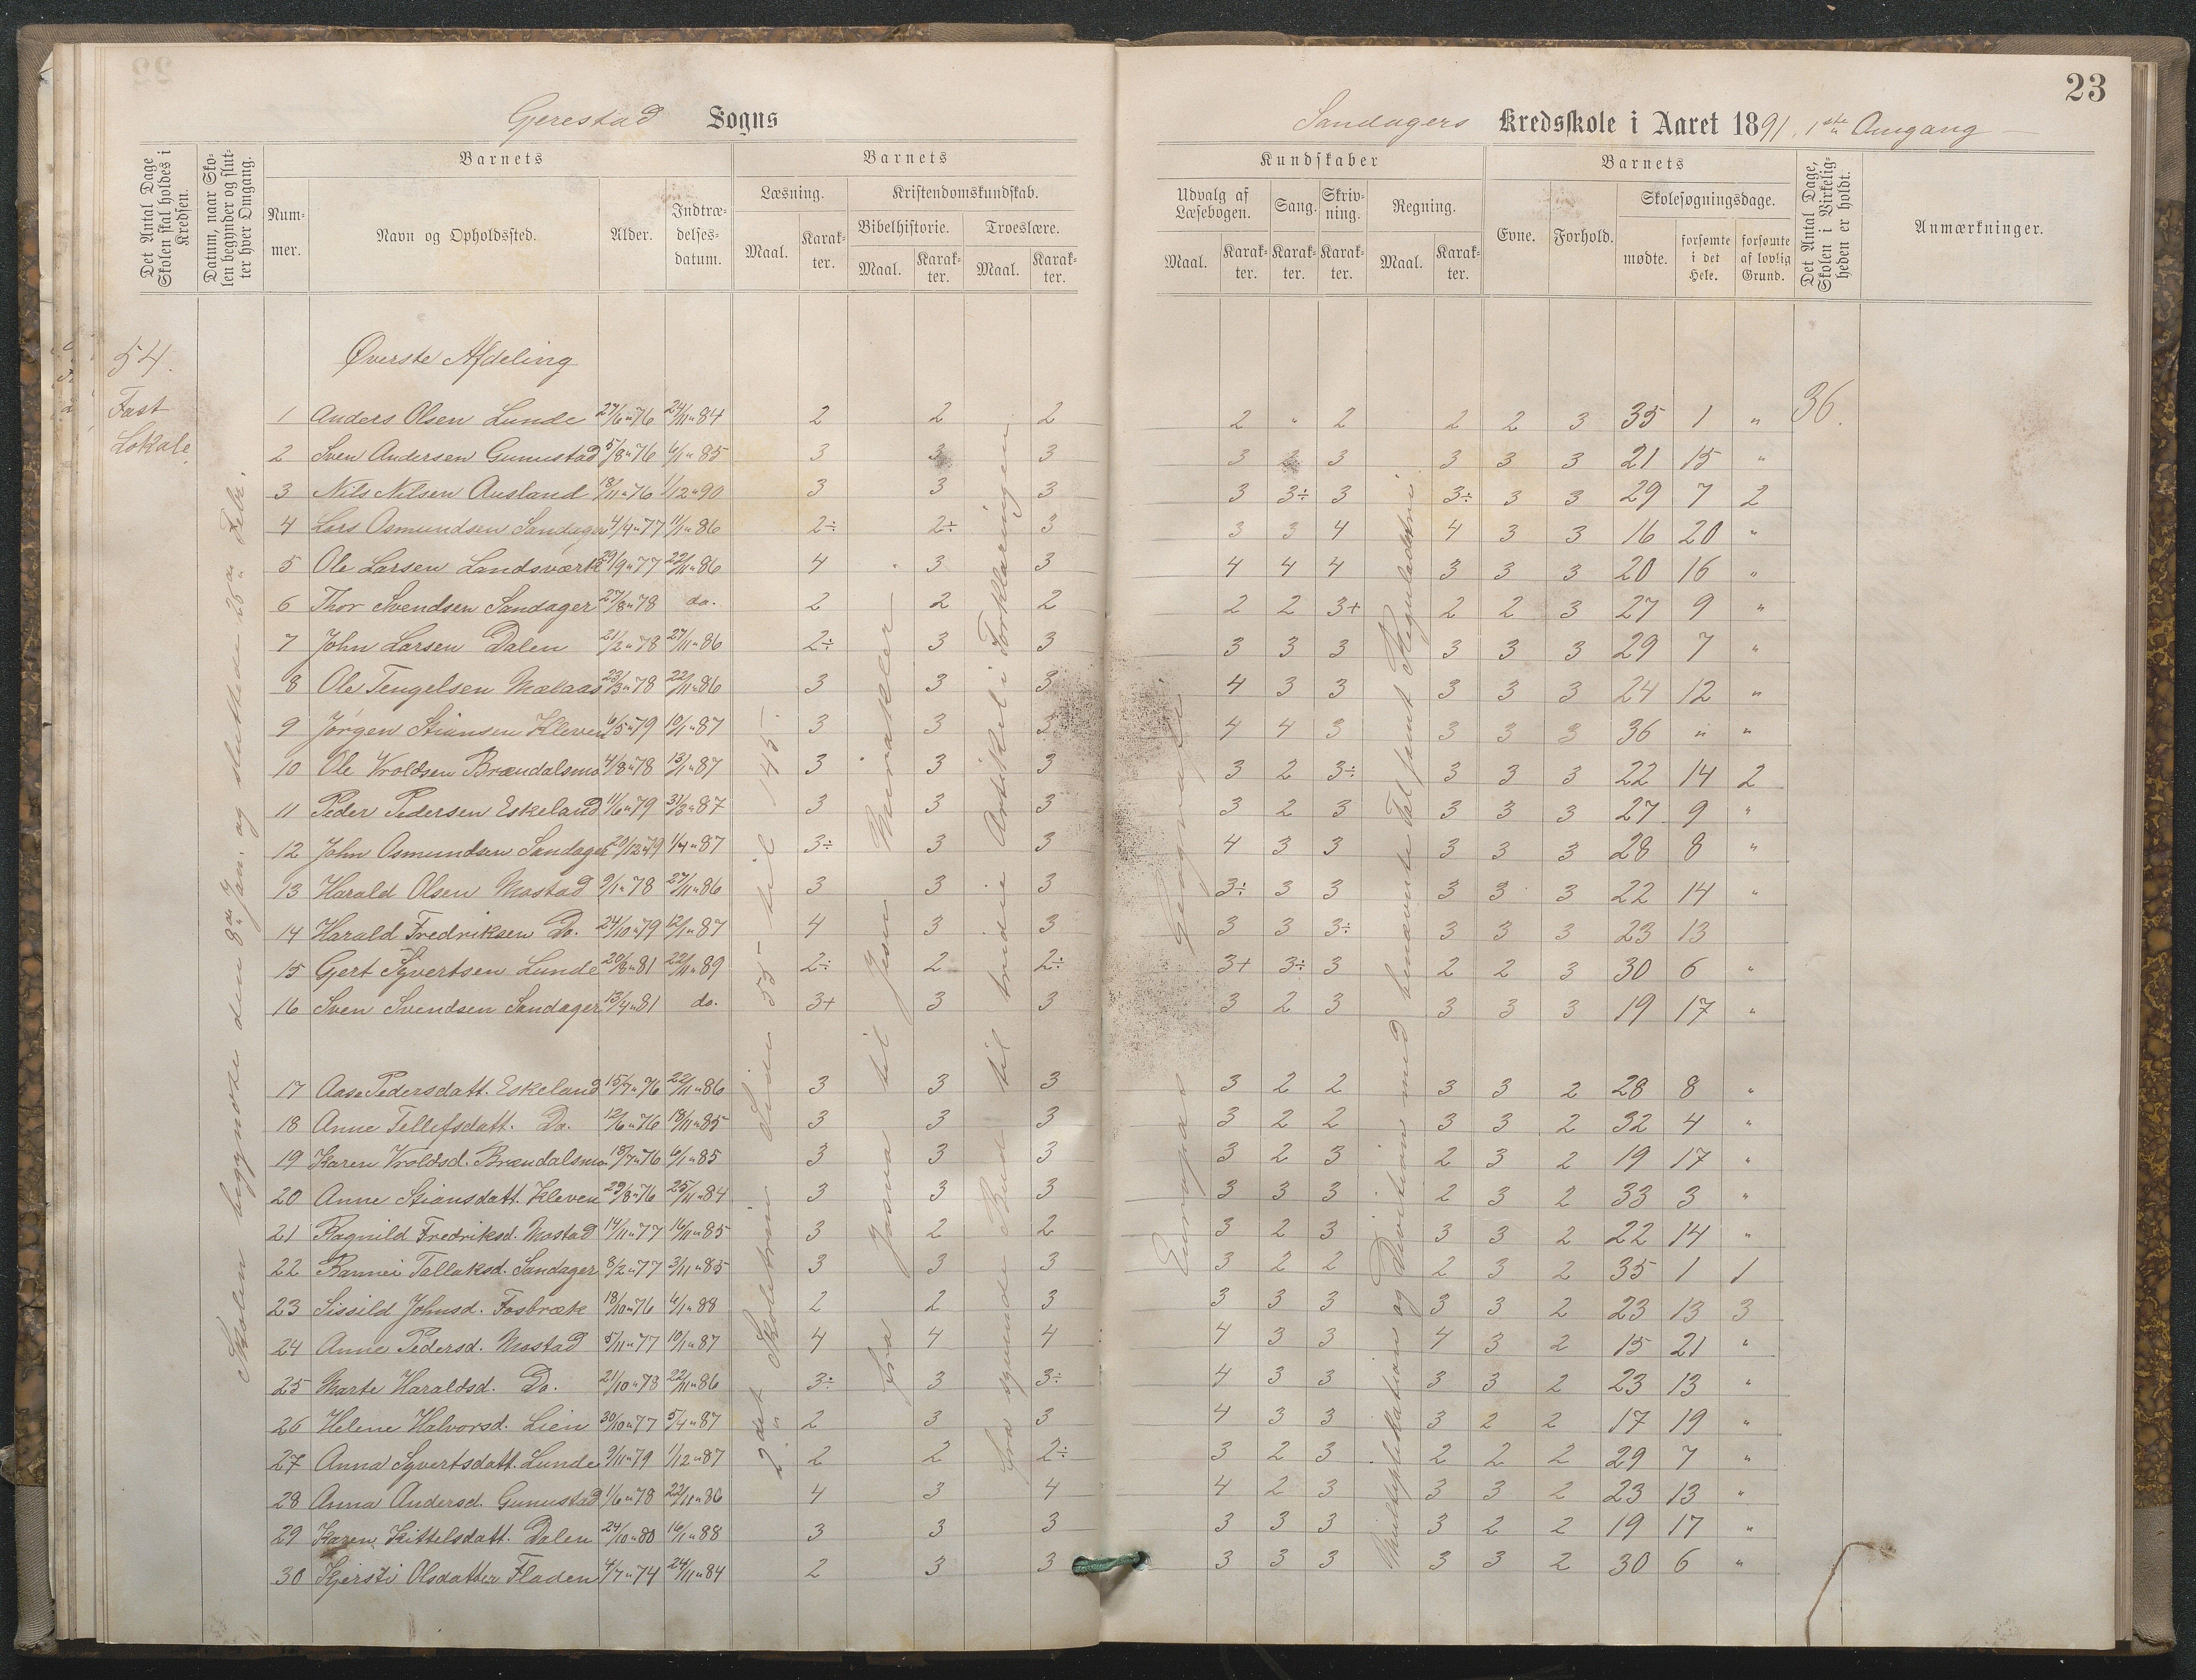 23
Gjerestad Sogns
Sandagers Kredsskole i Aaret 1891, 1ste Omgang
Det Antal Dage Skolen skal holdes i Kredsen.
Datum, naar Skolen begynder og slutter hver Omgang.
Barnets
Nummer.
Navn og Opholdssted.
Alder.
Indtrædelsesdatum.
Barnets
Læsning.
Maal.
Karakter.
Kristendomskundskab.
Bibelhistorie.
Maal.
Karakter.
Troeslære.
Maal.
Karakter.
Kundskaber
Udvalg af Læsebogen.
Maal.
Karakter.
Sang.
Karakter.
Skrivning.
Karakter.
Regning.
Maal.
Karakter.
Barnets
Evne.
Forhold.
Skolesøgningsdage.
mødte.
forsømte i det Hele.
forsømte af lovlig Grund.
Det Antal Dage, Skolen i Virkeligheden er holdt.
Anmærkninger.
54.
Fast
Lokale
Skolen begyndte den 8de Jan. og sluttede 25de Febr.
Øverste Afdeling
2det Skoletrin Side 55 til 145.
Fra Josva til Jesu Mirakler
til tredie Artikel i Forklaringen
Europa
Multiplikation og Division med benævnte Tal samt Reguladetri
36.
1 Anders Olsen Lunde 27/6 76 24/11 84 2 2 2 2 " 2 2 2 3 35 1 "
2 Sven Andersen Gunustad 5/8 76 6/1 85 3 3 3 3 2 3 3 3 3 21 15 "
3 Nils Nilsen Ausland 18/11 76 1/12 90 3 3 3 3 3÷ 3 3÷ 3 3 29 7 2
4 Lars Osmundsen Sandager 4/4 77 11/1 86 2÷ 2÷ 3 3 3 4 4 3 3 16 20 "
5 Ole Larsen Landsværk 29/9 77 22/11 86 4 3 3 4 4 4 3 3 3 20 16 "
6 Thor Svendsen Sandager 27/8 78 do. 2 2 2 2 2 3+ 2 2 3 27 9 "
7 John Larsen Dalen 21/2 78 27/11 86 2÷ 3 3 3 3 3 3 3 3 29 7 "
8 Ole Tengelsen Mælaas 23/3 78 22/11 86 3 3 3 4 3 3 3 3 3 24 12 "
9 Jørgen Stiansen Kleven 6/5 79 10/1 87 3 3 3 4 4 3 3 3 3 36 " "
10 Ole Vroldsen Brændalsmo 4/8 78 13/1 87 3 3 3 3 2 3÷ 3 3 3 22 14 2
11 Peder Pedersen Eskeland 11/6 79 31/3 87 3 3 3 3 2 3 3 3 3 27 9 "
12 John Osmundsen Sandager 20/12 79 1/4 87 3÷ 3 3 4 3 3 3 3 3 28 8 "
13 Harald Olsen Mostad 9/1 78 27/11 86 3 3 3 3÷ 3 3 3 3 3 22 14 "
14 Harald Fredriksen Do. 24/10 79 12/1 87 4 3 3 3 3 3÷ 3 3 3 23 13
15 Gert Syvertsen Lunde 20/8 81 22/11 89 2÷ 2 2÷ 3+ 3÷ 3 2 2 3 30 6 "
16 Sven Svendsen Sandager 13/4 81 do. 3+ 3 3 3 2 3 3 3 3 19 17 "
17 Aase Pedersdatt. Eskeland 15/7 76 22/11 86 3 3 3 3 2 2 3 3 2 28 8 "
18 Anne Tellefsdatt. Do. 12/6 76 18/11 85 3 3 3 3 2 2 3 3 2 32 4 "
19 Karen Vroldsd. Brændalsmo 18/7 76 6/1 85 3 3 3 3 2 3 2 3 2 19 17 "
20 Anne Stiansdatt. Kleven 29/8 76 25/11 84 3 3 3 3 3 3 2 3 2 33 3 "
21 Ragnild Fredriksd. Mostad 14/11 77 16/11 85 3 2 2 3 2 3 3 3 2 22 14 "
22 Rannei Tallaksd. Sandager 8/2 77 3/11 85 3 3 3 3 2 2 2 3 2 35 1 1
23 Sissild Johnsd. Fosbræk 18/10 76 6/1 88 2 2 3 3 3 3 3 3 2 23 13 3
24 Anne Pedersd. Mostad 5/11 77 10/1 87 4 4 4 4 3 3 4 3 2 15 21 "
25 Marte Haraldsd. Do. 21/10 78 22/11 86 3÷ 3 3÷ 4 3 3 3 3 2 23 13 "
26 Helene Halvorsd. Lien 30/10 77 5/4 87 2 3 3 4 3 3 3 2 2 17 19 "
27 Anna Syvertsdatt. Lunde 9/11 79 1/12 87 2 2 2÷ 3 2 3 2 2 2 29 7 "
28 Anna Andersd. Gunustad 1/6 78 22/11 86 4 3 4 4 2 3 3 3 2 23 13 "
29 Karen Kittelsdatt. Dalen 24/10 80 16/1 88 3 3 3 3 3 3 3 2 2 19 17 "
30 Kjersti Olsdatter Fladen 4/7 74 24/11 84 2 3 3 3 3 3 3 3 2 30 6 "